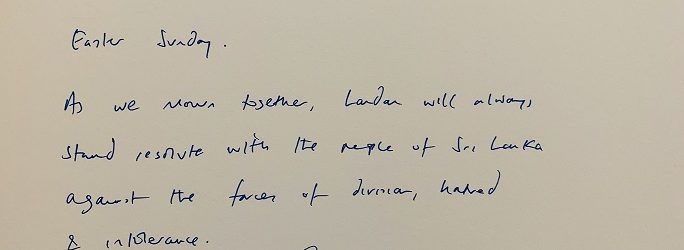 Easter Sunday.
As we mourn together, London will always
stand resolute with the people of Sri Lanka
against the forces of division, hatred
& intolerance.